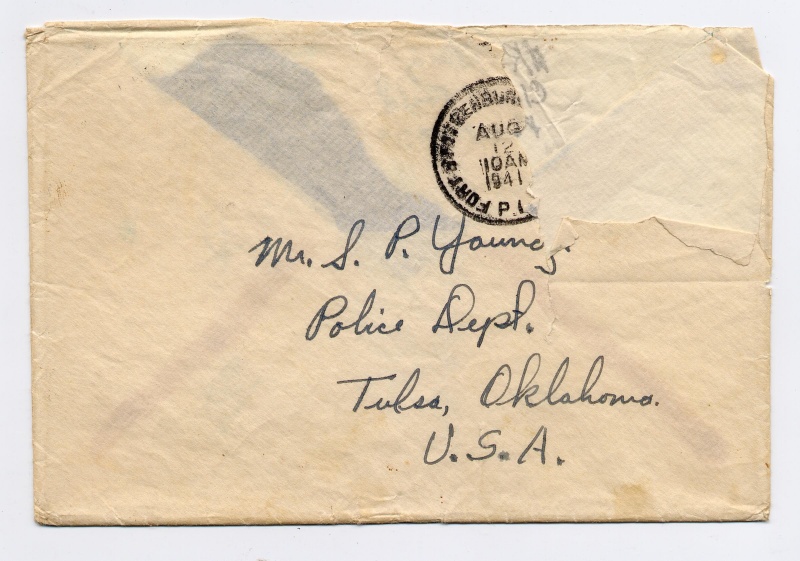 FORT STOTSENBUR
AUG
12
10AM
1941
P.I.
Mr. S. P. Young.
Police Dept.
Tulsa, Oklahoma.
U.S.A.